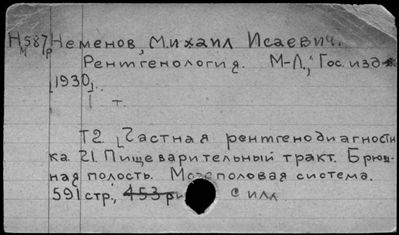 Н587р Неменов, Михаил Исаевич.
М
Рентгенология. М-Л., Гос. изд-
[1930].
т.
Т2. [Частная рентгенодиагности
ка. 2]. Пищеварительный тракт. Брюш-
ная полость. Мочеполовая система.
591 стр., 453 ри с илл